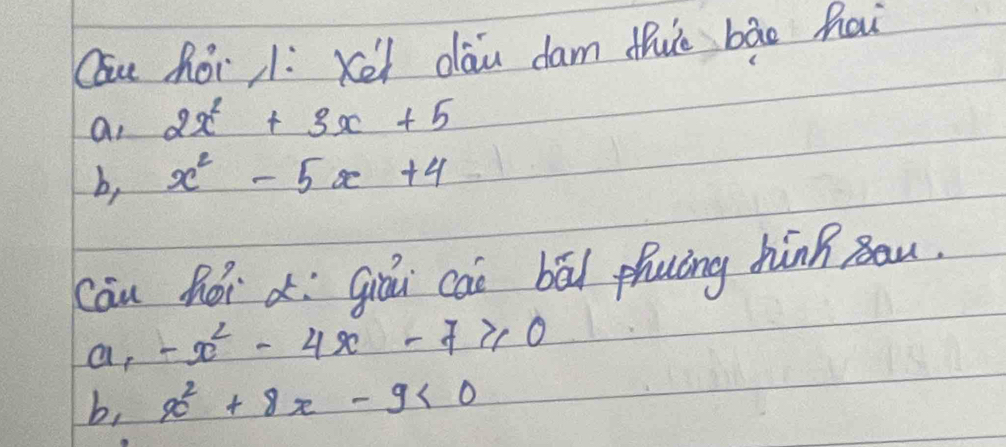 Câu hỏi 1: Xét dấu dam thức bậc hai
a, 2x² + 3x + 5
b, x² - 5x + 4
Câu hỏi 2: Giải các bất phương trình sau.
a, -x² - 4x - 7 ≥ 0
b, x² + 8x - 9 < 0